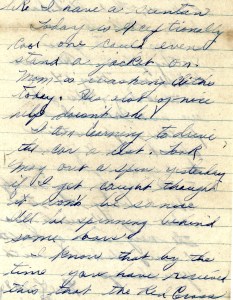 like I have a
Today is very
cool one could even
stand a jacket on
Mom is washing dishes
Today. Has a lot of nice
hasn't she!
I am learning to drive
the car a bit. Took
Mom out a spin yesterday
if I get caught though
it won't be so nice
I'll be spinning behind
some bars!
I know that by the
time you have received
this that the Red Cross